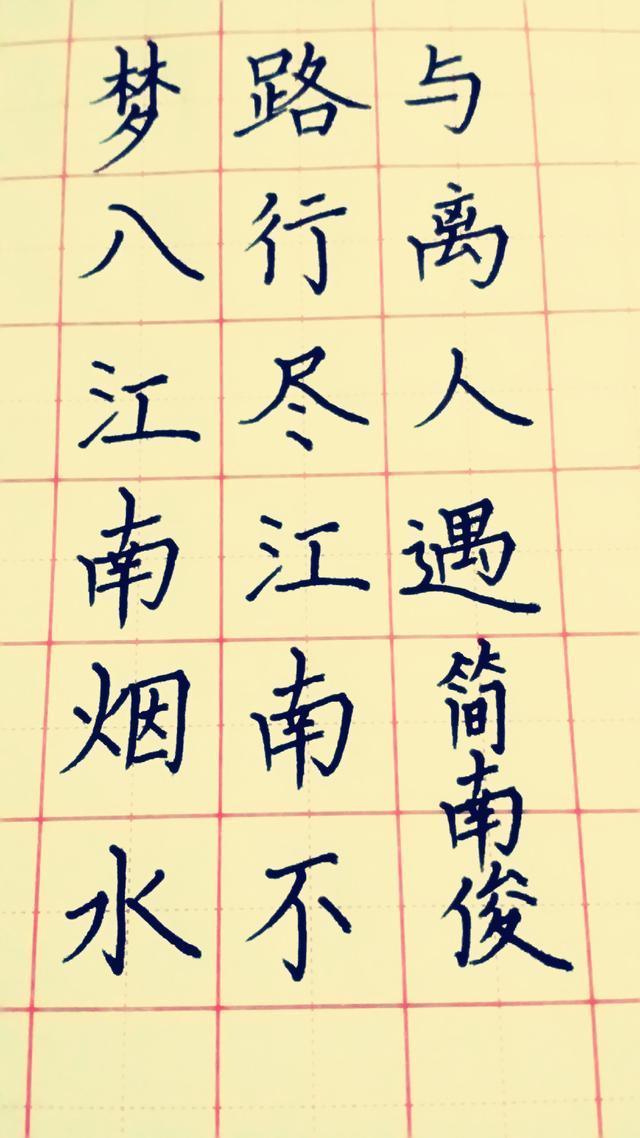 梦入江南烟水
路行尽江南不
与离人遇
简南俊